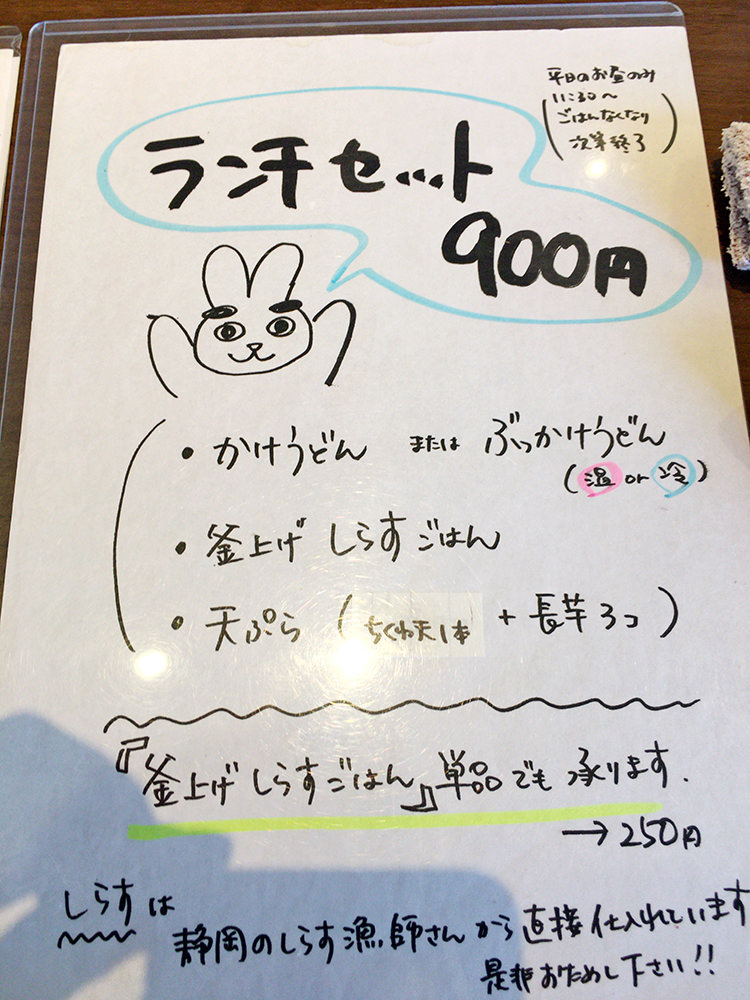 平日のお昼のみ
11:30〜
ごはんなくなり
次第終了
ランチセット
900円
・かけうどん または ぶっかけうどん
(温or冷)
・釜上げ しらすごはん
・天ぷら (ちくわ天1本 + 長芋3コ)
『釜上げ しらすごはん』単品でも承ります.
→250円
しらすは
静岡のしらす漁師さんから直接仕入れています
是非おためし下さい!!